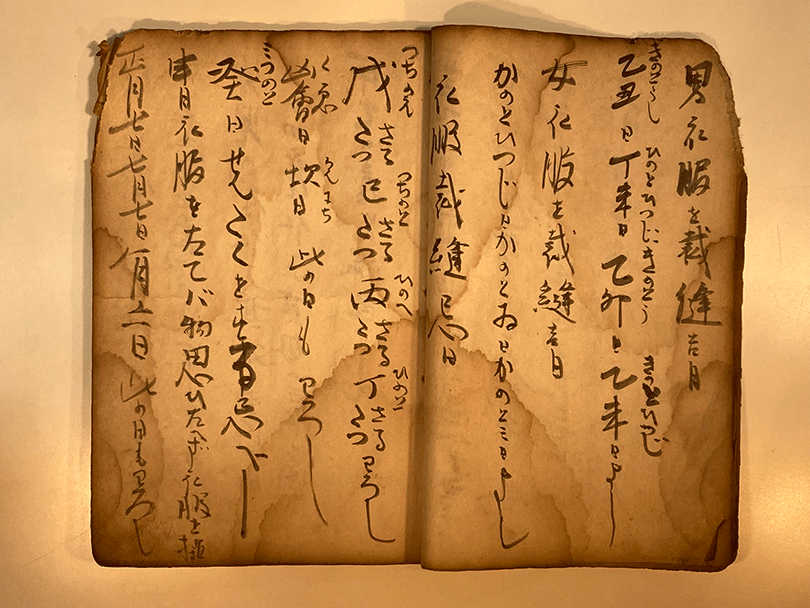 男衣服を裁縫吉日
乙丑日丁未日乙卯日乙未日よし
きのとうし ひのとひつじ きのとう きのとひつじ
女衣服を裁縫吉日
かのとひつじ日かのとゐ日かのとミ日よし
衣服裁縫忌日
戊さるたつ巳さるたつ丙さるたつ丁さるたつわろし
つちのえ つちのと ひのへ ひのと
凶會日坎日此の日もわろし
くゑ かんにち
癸日せんたくを忌べし
ミつのと
申日衣服をたてバ物思ひたへず衣服を
正月七日七月七日八月五日此の日もわろし